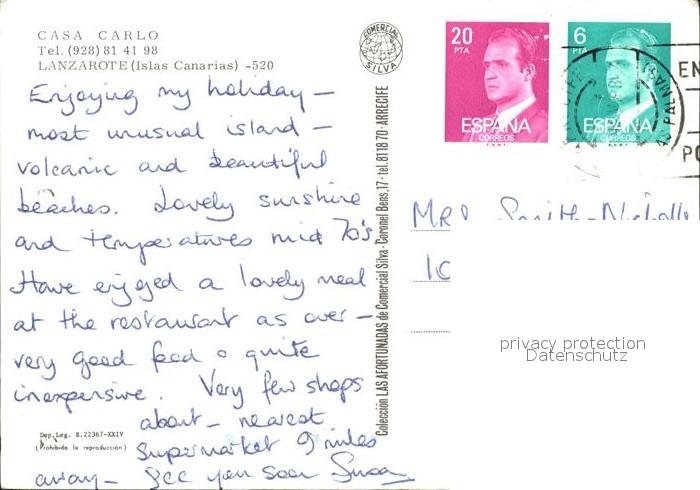 CASA CARLO
Tel. (928) 81 41 98
LANZAROTE (Islas Canarias) -520
Enjoying my holiday –
most unusual island –
volcanic and beautiful
beaches. Lovely sunshine
and temperatures mid 70's
Have enjoyed a lovely meal
at the restaurant as over –
very good food & quite
inexpensive. Very few shops
about – nearest
Supermarket 9 miles
away – See you soon Susan
Dep. Leg. B. 22367-XXIV
(Prohibida la reproducción)
COMERCIAL SILVA
Colección LAS AFORTUNADAS de Comercial Silva - Coronel Bens, 17 - tel. 81 18 70 - ARRECIFE
20 PTA
ESPAÑA
CORREOS
6 PTA
ESPAÑA
CORREOS
EN
PO
Smith-Nicholls
privacy protection
Datenschutz